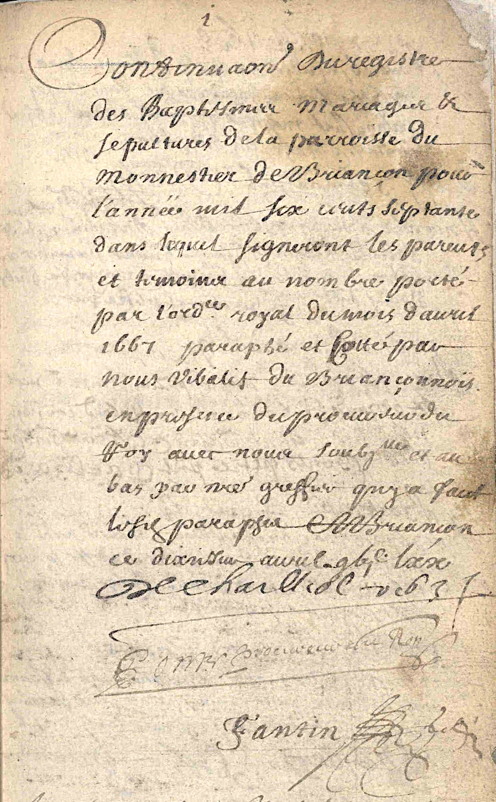 1
Continuaon du registre
des Baptismes Mariages &
sepultures de la parroisse du
Monnestier de Briançon pour
l'année mil six cents septante
dans lequel signeront les parents
et temoins au nombre porté
par l'ord.ce royal du mois d'avril
1667 paraphé et Cotté par
nous Vibalif du Briançonnois
en presence du procureur du
Roy avec nous soubz.né et au
bas par nre greffier quy a faict
paraphe A Briancon
ce avril
De Chailliol

Fantin